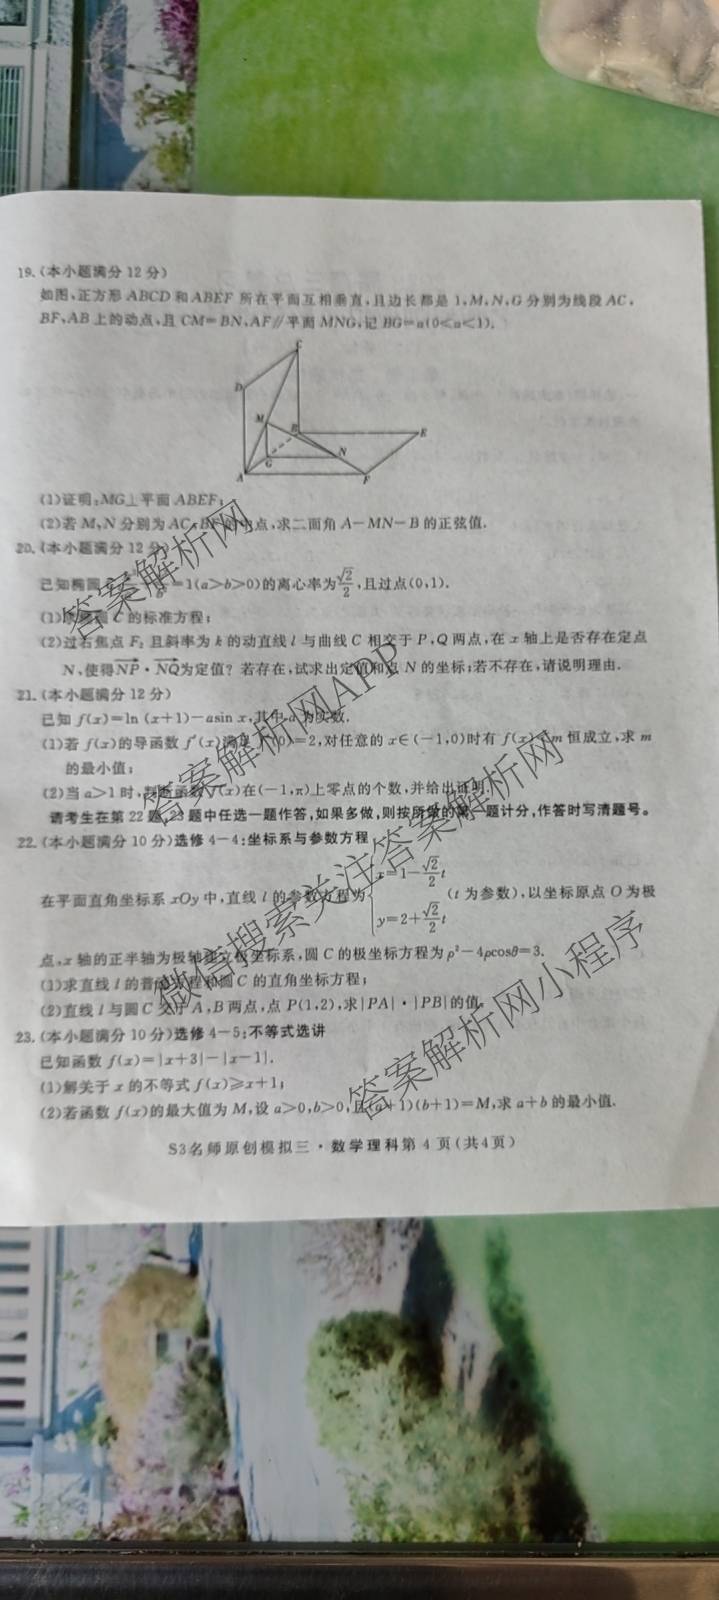 19.(本小题满分 12 分)
如图,正方形 ABCD 和 ABEF 所在平面互相垂直,且边长都是 1,M,N,G 分别为线段 AC,
BF,AB 上的动点,且 CM=BN,AF∥平面 MNG,记 BG=a(0<a<1).
C
D
M
B
E
G
N
A
F
(1)证明:MG⊥平面 ABEF;
(2)若 M,N 分别为 AC,BF 的中点,求二面角 A-MN-B 的正弦值.
20.(本小题满分 12 分)
已知椭圆 =1(a>b>0)的离心率为√2/2,且过点(0,1).
(1)求椭圆 C 的标准方程;
(2)过右焦点 F₂ 且斜率为 k 的动直线 l 与曲线 C 相交于 P,Q 两点,在 x 轴上是否存在定点
N,使得NP·NQ为定值? 若存在,试求出定值和点 N 的坐标;若不存在,请说明理由.
21.(本小题满分 12 分)
已知 f(x)=ln (x+1)-asin x,其中 a 为实数.
(1)若 f(x)的导函数 f′(x)满足 f′(0)=2,对任意的 x∈(-1,0)时有 f(x) m 恒成立,求 m
的最小值;
(2)当 a>1 时,判断函数 f(x)在(-1,π)上零点的个数,并给出证明.
请考生在第 22 题,23 题中任选一题作答,如果多做,则按所做的第一题计分,作答时写清题号。
22.(本小题满分 10 分)选修 4-4:坐标系与参数方程
在平面直角坐标系 xOy 中,直线 l 的参数方程为{x=1-√2/2 t, y=2+√2/2 t (t 为参数),以坐标原点 O 为极
点,x 轴的正半轴为极轴建立极坐标系,圆 C 的极坐标方程为 ρ²-4ρcosθ=3.
(1)求直线 l 的普通方程和圆 C 的直角坐标方程;
(2)直线 l 与圆 C 交于 A,B 两点,点 P(1,2),求|PA|·|PB|的值.
23.(本小题满分 10 分)选修 4-5:不等式选讲
已知函数 f(x)=|x+3|-|x-1|.
(1)解关于 x 的不等式 f(x)≥x+1;
(2)若函数 f(x)的最大值为 M,设 a>0,b>0,且(a+1)(b+1)=M,求 a+b 的最小值.
S3名师原创模拟三·数学理科第 4 页(共4页)
答案解析网
答案解析网APP
微信搜索关注答案解析网
答案解析网小程序